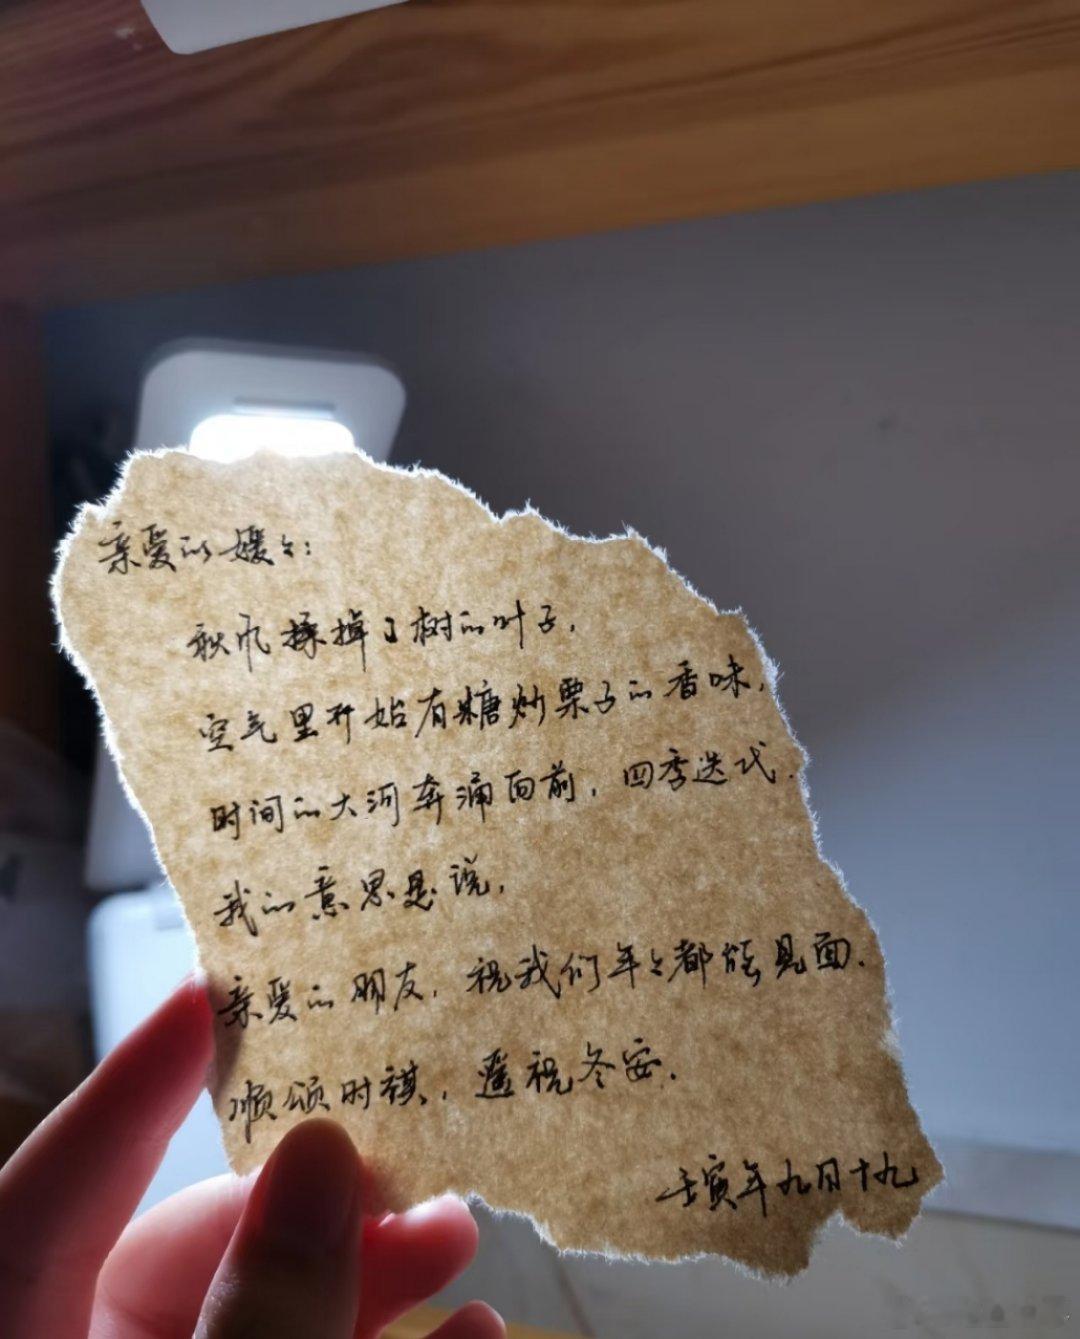 亲爱的媛々：
秋风揉掉了树的叶子，
空气里开始有糖炒栗子的香味，
时间的大河奔涌向前，四季迭代．
我的意思是说，
亲爱的朋友，祝我们年々都能见面．
顺颂时祺，遥祝冬安．
壬寅年九月十九